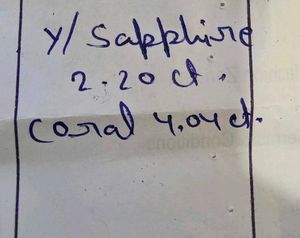 Y/ Sapphire
2.20 ct.
Coral 4.04 ct.